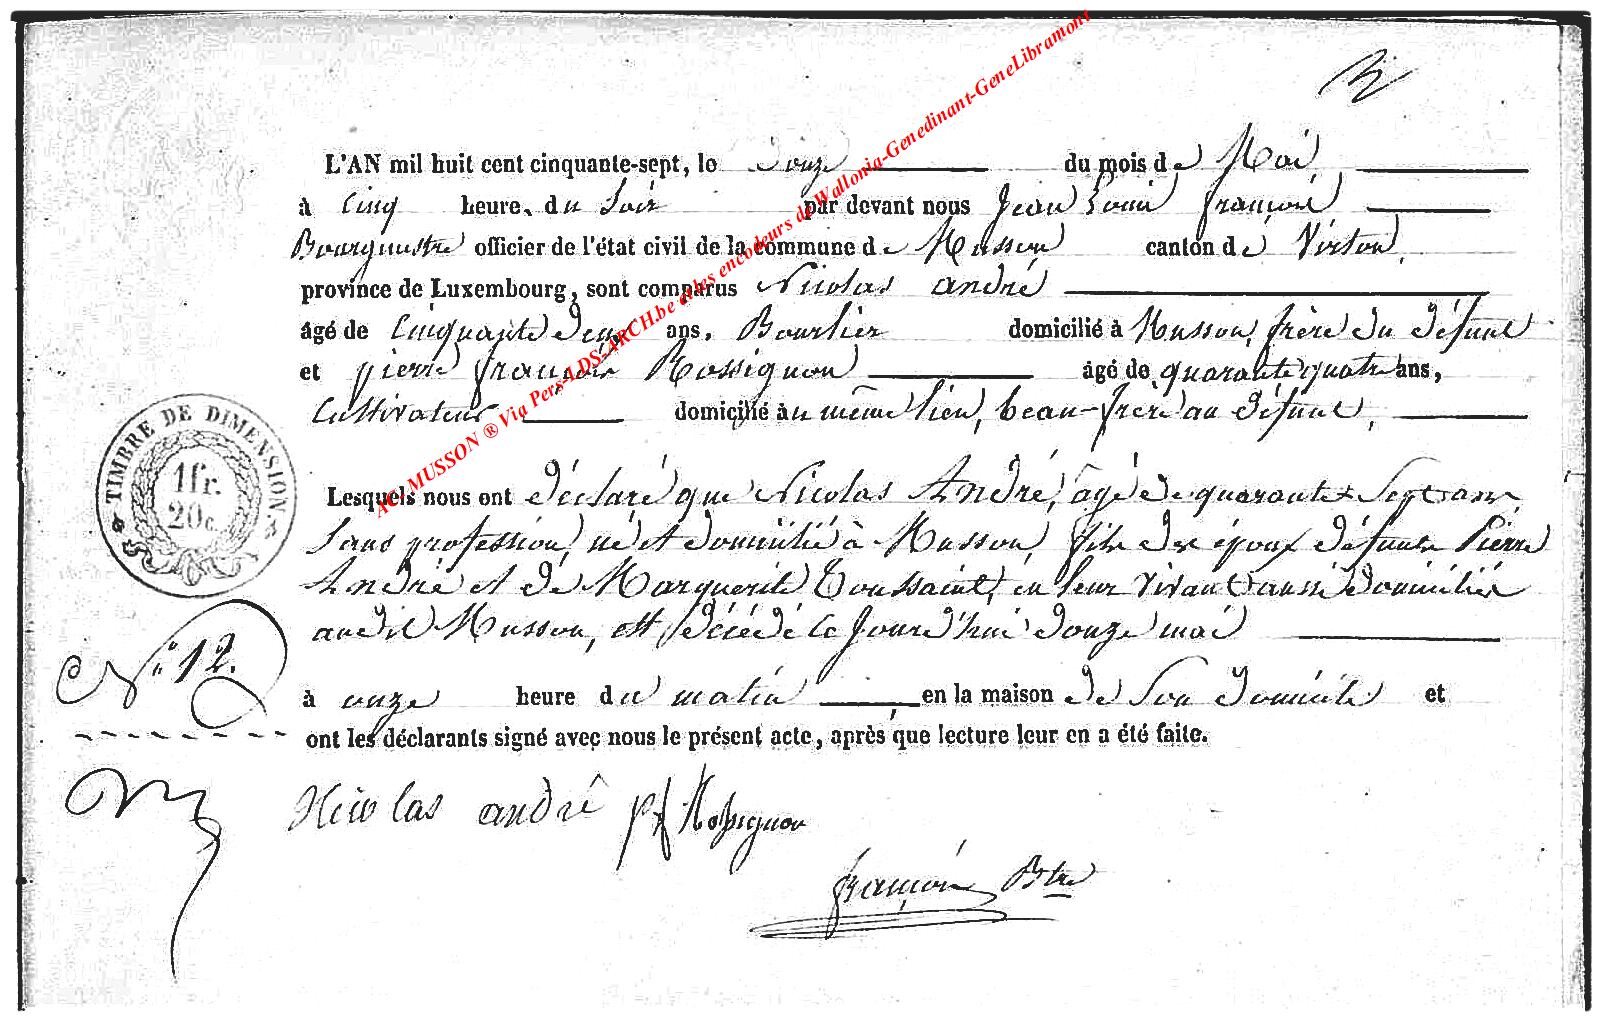 L'AN mil huit cent cinquante-sept, le douze du mois de Mai
à Cinq heure, du Soir par devant nous Jean Louis françois
Bourgmestre officier de l'état civil de la commune de Musson canton de Virton,
province de Luxembourg, sont comparus Nicolas andré
âgé de Cinquante deux ans, Bourlier domicilié à Musson, frère du défunt
et pierre françois Rossignon âgé de quarante quatre ans,
Cultivateur domicilié au même lieu, beau-frère au défunt,
TIMBRE DE DIMENSION
1 fr.
20 c.
Lesquels nous ont déclaré que Nicolas André, âgé de quarante Sept ans
Sans profession, né et domicilié à Musson, fils des époux défunts Pierre
André et de Marguerite Toussaint, en leur vivant aussi domiciliés
audit Musson, est décédé le jourd'hui douze mai
N° 12.
à onze heure du matin en la maison de Son domicile et
ont les déclarants signé avec nous le présent acte, après que lecture leur en a été faite.
Nicolas andrê pf Rossignon
françois Btre
AC- MUSSON ® Via Pers-LDS-ARCH.be et les encodeurs de Wallonia-Genedinant-GeneLibramont